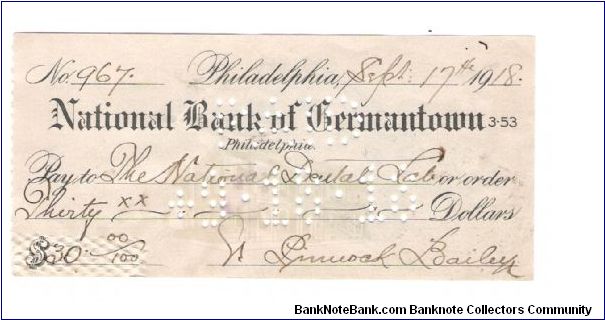 No. 967. Philadelphia, Sept. 17th 1918.
National Bank of Germantown 3-53
Philadelphia.
Pay to The National Dental Lab or order
Thirty xx Dollars
$30 00/100 Pinnock Bailey
BankNoteBank.com Banknote Collectors Community